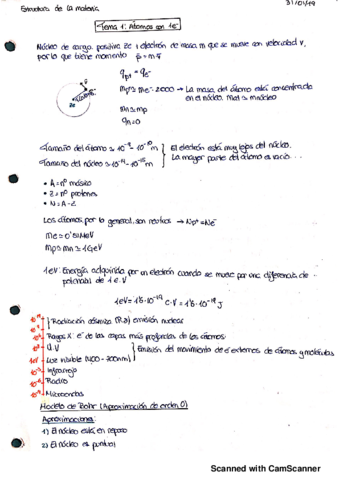 Estructura de la materia
31/01/19
Tema 1: Átomos con 1e⁻
Núcleo de carga positiva Ze y electrón de masa m que se mueve con velocidad V,
por lo que tiene momento p = m·v
qp+ = qe-
mp ≈ me·2000 → La masa del átomo está concentrada
en el núcleo.
mn ≈ mp
qn = 0
Ze
Tamaño del átomo ≈ 10⁻⁹-10⁻¹⁰ m
El electrón está muy lejos del núcleo.
Tamaño del núcleo ≈ 10⁻¹⁴-10⁻¹⁵ m
La mayor parte del átomo es vacío
• A = nº másico
• Z = nº protones
• N = A-Z
Los átomos por lo general son neutros → Np+ = Ne-
mp ≈ mn ≈ 1GeV
1eV: Energía adquirida por un electrón cuando se mueve por una diferencia de
potencial de 1 V
1eV = 1'6·10⁻¹⁹ C·V = 1'6·10⁻¹⁹ J
Radiación cósmica emisión nuclear
Rayos X e⁻ de las capas más profundas de los átomos
U.V
Emisión del movimiento de e⁻ externos de átomos y moléculas
Luz visible (400-700nm)
Infrarrojo
Radio
Microondas
Modelo de Bohr (Aproximación de orden 0)
Aproximaciones:
1) El núcleo está en reposo
2) El núcleo es puntual
Scanned with CamScanner